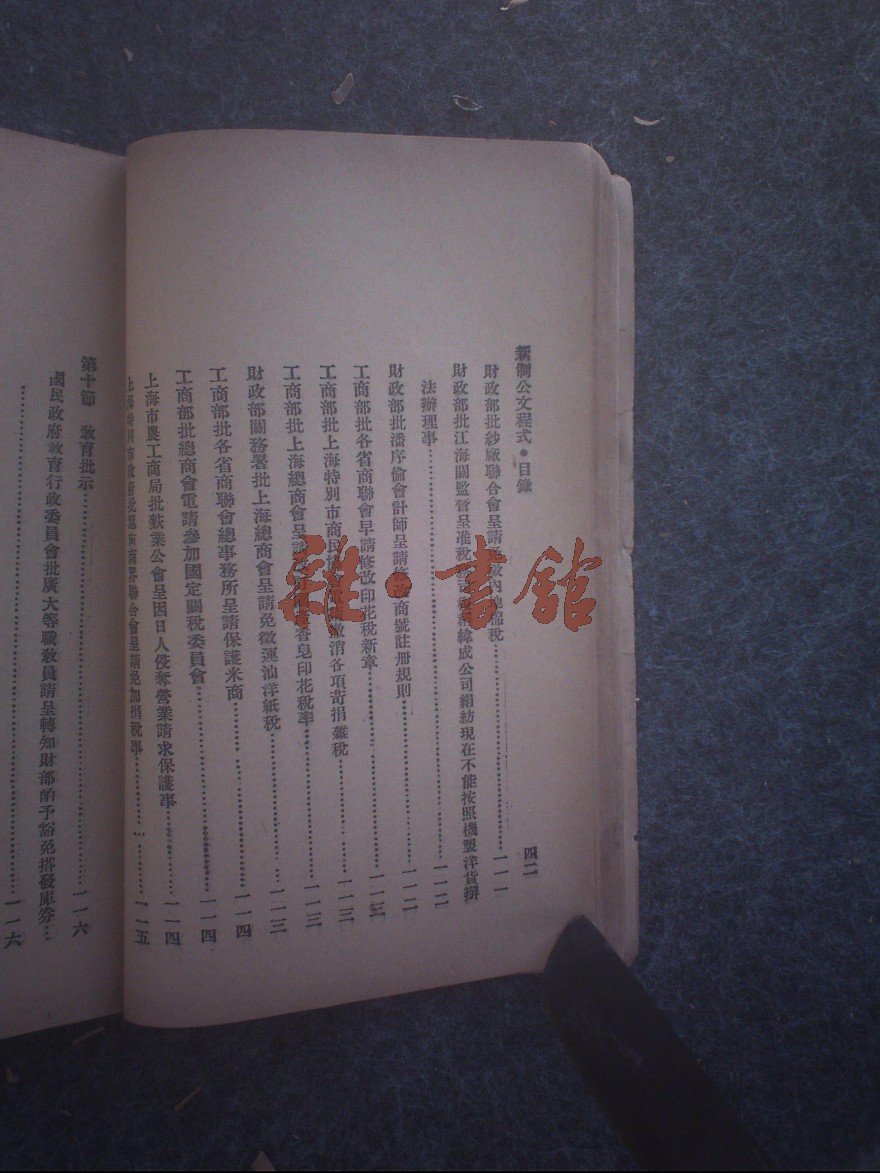 新制公文程式・目錄
四二
財政部批紗廠聯合會呈請免徵內地棉稅……一一一
財政部批江海關監督呈准稅務司緯成公司絹紡現在不能按照機製洋貨辦
法辦理事……一一二
財政部批潘序倫會計師呈請修改商號註冊規則……一一二
工商部批各省商聯會早請修改印花稅新章……一一三
工商部批上海特別市商民協會撤消各項苛捐雜稅……一一三
工商部批上海總商會呈請香皂印花稅率……一一三
財政部關務署批上海總商會呈請免徵運汕洋紙稅……一一三
工商部批各省商聯會總事務所呈請保護米商……一一四
工商部批總商會電請參加國定關稅委員會……一一四
上海市農工商局批業公會呈因日人侵奪營業請求保護事……一一四
上海特別市政府批商界聯合會呈請免加捐稅事……一一五
第十節　教育批示……一一六
國民政府教育行政委員會批廣大等職教員請呈轉知財部酌予豁免搭發庫券…
……一一六
雜・書館